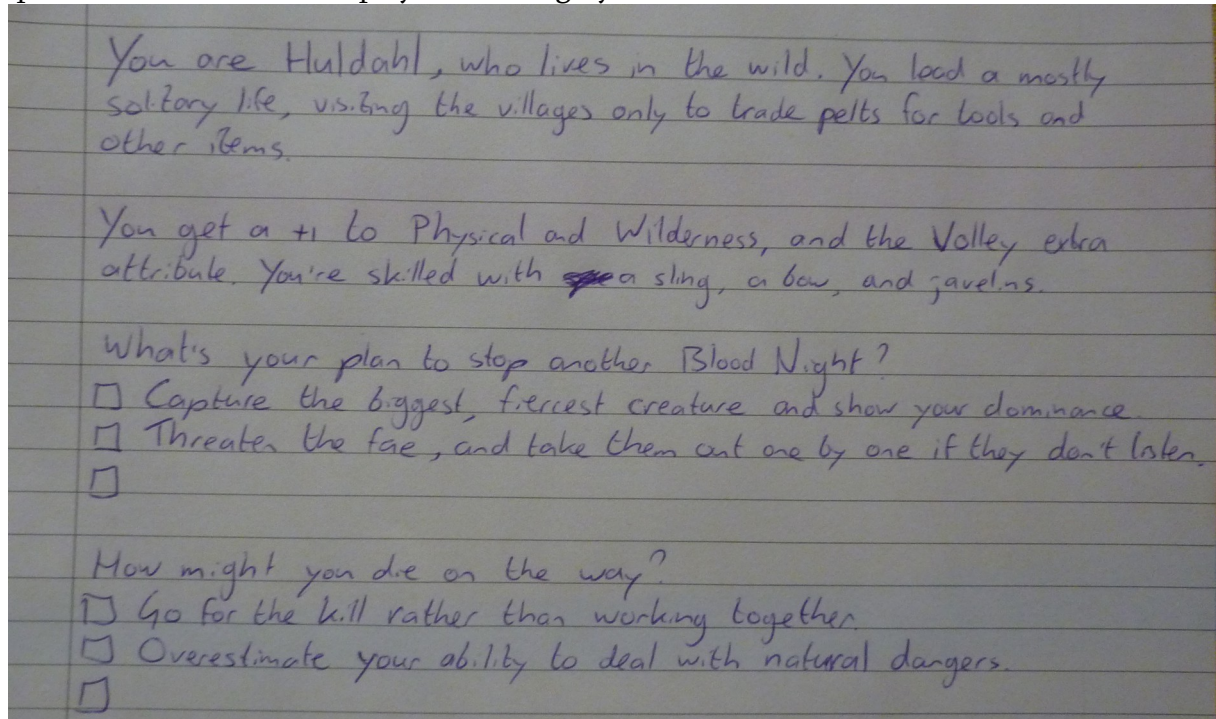 You are Huldahl, who lives in the wild. You lead a mostly
solitary life, visiting the villages only to trade pelts for tools and
other items.
You get a +1 to Physical and Wilderness, and the Volley extra
attribute. You're skilled with a sling, a bow, and javelins.
What's your plan to stop another Blood Night?
□ Capture the biggest, fiercest creature and show your dominance.
□ Threaten the fae, and take them out one by one if they don't listen.
□
How might you die on the way?
□ Go for the kill rather than working together.
□ Overestimate your ability to deal with natural dangers.
□